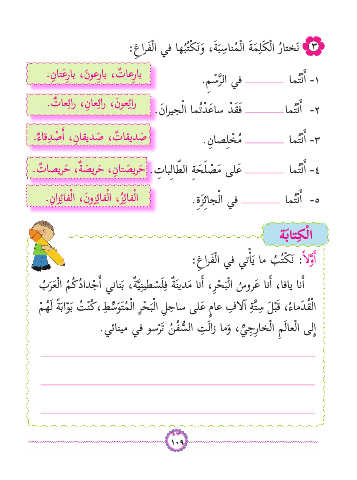 ٣ نَختارُ الْكَلِمَةَ الْمُناسِبَةَ، وَنَكْتُبُها في الْفَراغِ:
١- أَنْتُما ________ في الرَّسْمِ. بارِعاتٌ، بارِعونَ، بارِعَتانِ.
٢- أَنْتُما ________ فَقَدْ ساعَدْتُما الْجيرانَ. رائِعونَ، رائِعانِ، رائِعاتٌ.
٣- أَنْتُما ________ مُخْلِصانِ. صَديقاتٌ، صَديقانِ، أَصْدِقاءٌ.
٤- أَنْتُما ________ عَلى مَصْلَحَةِ الطّالِباتِ. حَريصَتانِ، حَريصَةٌ، حَريصاتٌ.
٥- أَنْتُما ________ في الْجائِزَةِ. الْفائِزُ، الْفائِزونَ، الْفائِزانِ.
الْكِتابَة
أَوَّلاً: نَكْتُبُ ما يَأْتي في الْفَراغِ:
أَنا يافا، أَنا عَروسُ الْبَحْرِ، أَنا مَدينَةٌ فِلَسْطينِيَّةٌ، بَناني أَجْدادُكُمُ الْعَرَبُ
الْقُدَماءُ، قَبْلَ سِتَّةِ آلافِ عامٍ عَلى ساحِلِ الْبَحْرِ الْمُتَوَسِّطِ، كُنْتُ بَوّابَةً لَهُمْ
إِلى الْعالَمِ الْخارِجِيِّ، وَما زالَتِ السُّفُنُ تَرْسو في مينائي.
١٠٩